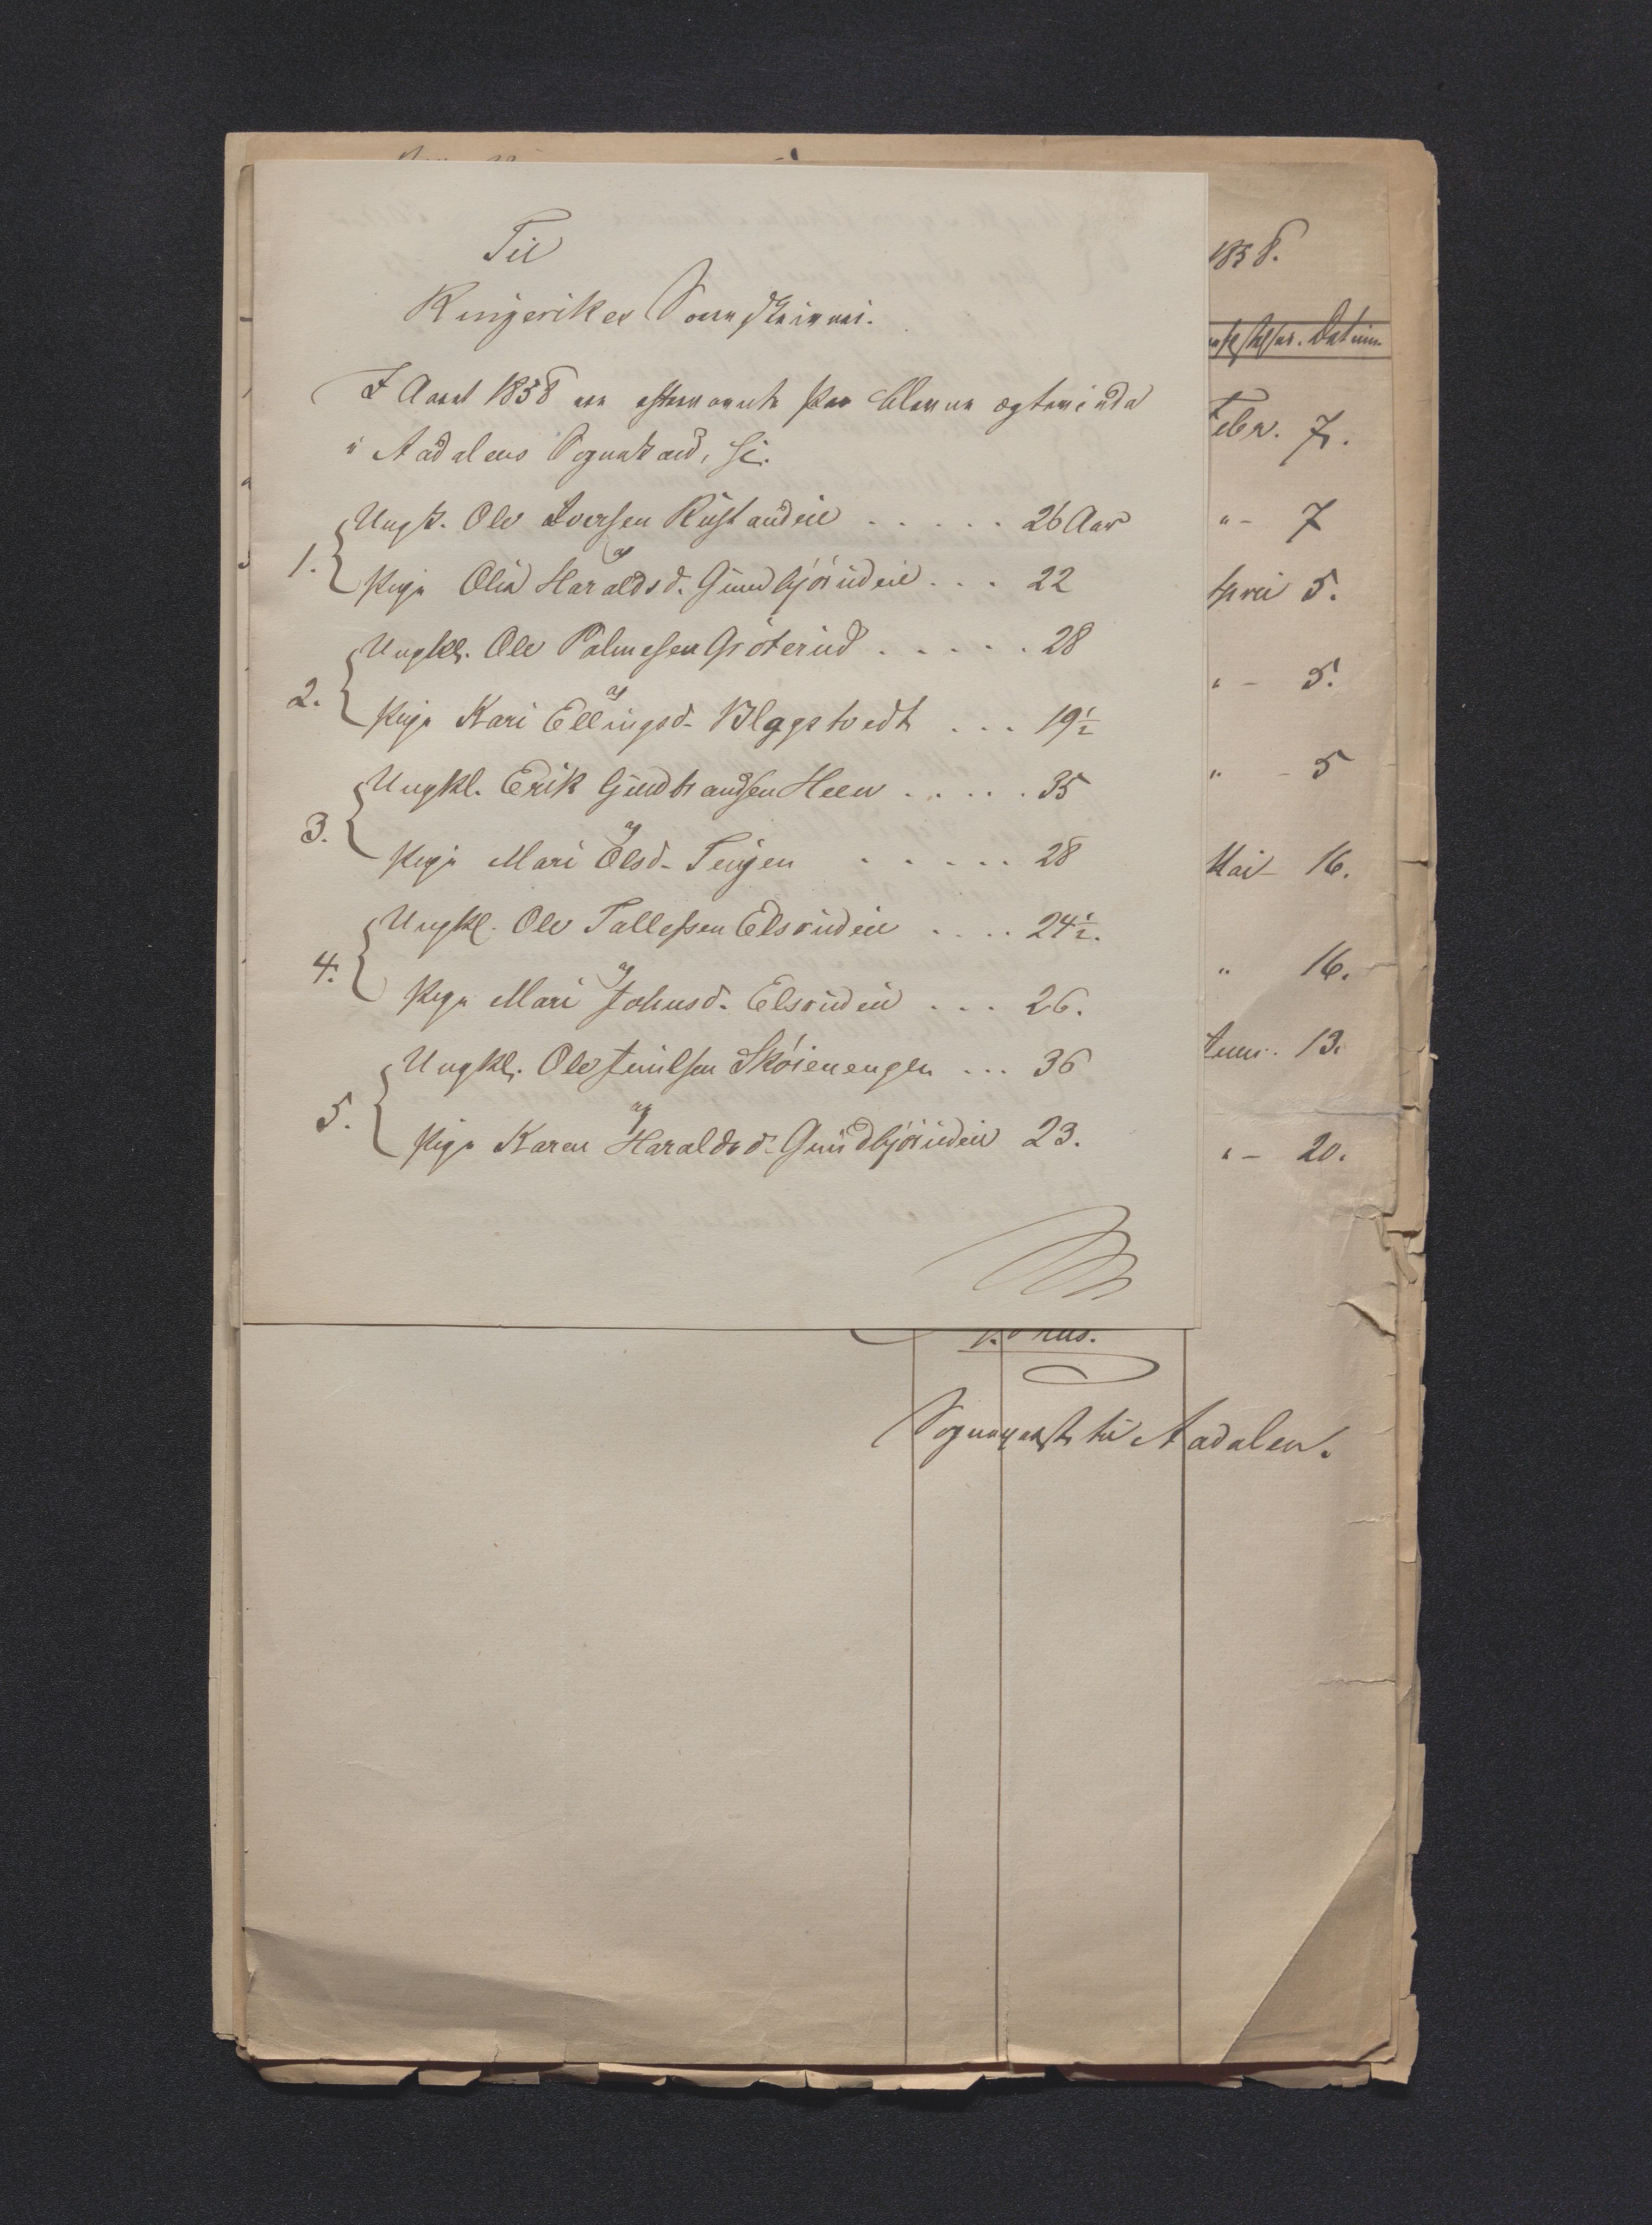 Til
Ringerikes Sorenskriveri.
I Aaret 1858 ere efternævnte Par blevne ægteviede
i Aadalens Sognekald, si.
1. Ungk. Ole Iversen Rustandeie . . . . . 26 Aar
og
Pige Olia Haraldsd. Gundbjørudeie . . . 22
2. Ungkl. Ole Palmesen Grøterud . . . . . 28
og
Pige Kari Ellingsd. Blagstvedt . . . 19½
3. Ungkl. Erik Gudbrandsen Heen . . . . . 35
og
Pige Mari Olsd. Teigen . . . . . . 28
4. Ungkl. Ole Tollefsen Elsrudeie . . . . 24½.
og
Pige Mari Johnsd. Elsrudeie . . . 26.
5. Ungkl. Ole Juulsen Skøienengen . . . 36
og
Pige Karen Haraldsd. Gundbjørudeie 23.
1858.
Datum
Febr. 7.
" - 7
April 5.
" - 5.
" - 5
Mai - 16.
" 16.
13.
" - 20.
Sognepræst til Aadalen.